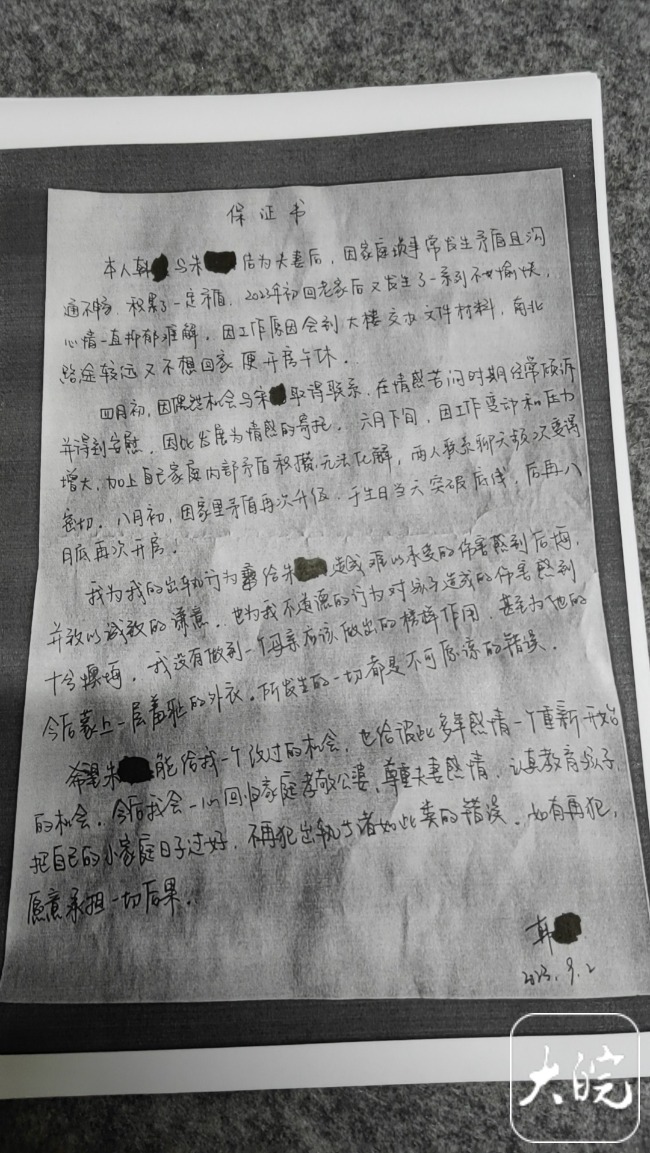 保证书
本人韩与朱结为夫妻后，因家庭琐事常发生矛盾且沟
通不畅，积累了一定矛盾，2023年初回老家后又发生了一系列不愉快，
心情一直抑郁难解，因工作原因会到大楼交办文件材料，南北
路途较远又不想回家便开房午休．
四月初，因偶然机会与宋取得联系，在情感苦闷时期经常倾诉
并得到安慰，因此发展为情感的寄托．六月下旬，因工作变动和压力
增大，加上自己家庭内部矛盾积攒无法化解，两人联系聊天频次变得
密切．八月初，因家里矛盾再次升级，于生日当天突破底线，后再八
月底再次开房！
我为我的出轨行为给朱造成难以承受的伤害感到后悔，
并致以诚致的谦意．也为我不道德的行为对孩子造成的伤害感到
十分懊悔，我没有做到一个母亲应该做出的榜样作用，甚至为他的
今后蒙上一层羞耻的外衣．所发生的一切都是不可原谅的错误．
希望朱能给我一个改过的机会，也给彼此多年感情一个重新开始
的机会．今后我会一心回归家庭孝敬公婆，尊重夫妻感情，认真教育孩子，
把自己的小家庭日子过好，不再犯出轨或者如此类的错误．如有再犯，
愿意承担一切后果．
韩
2023．9．2
大皖